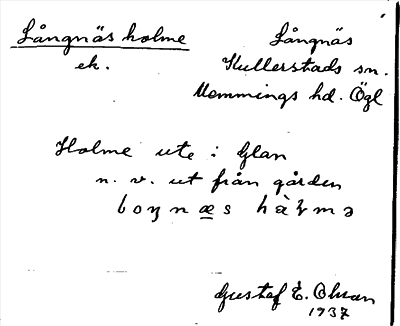 Långnäs holme
ek.
Långnäs
Kullerstads sn.
Memmings hd. Ögl
Holme ute i Glan
n. v. ut från gården
loŋnæs
Gustaf E. Olsson
1937